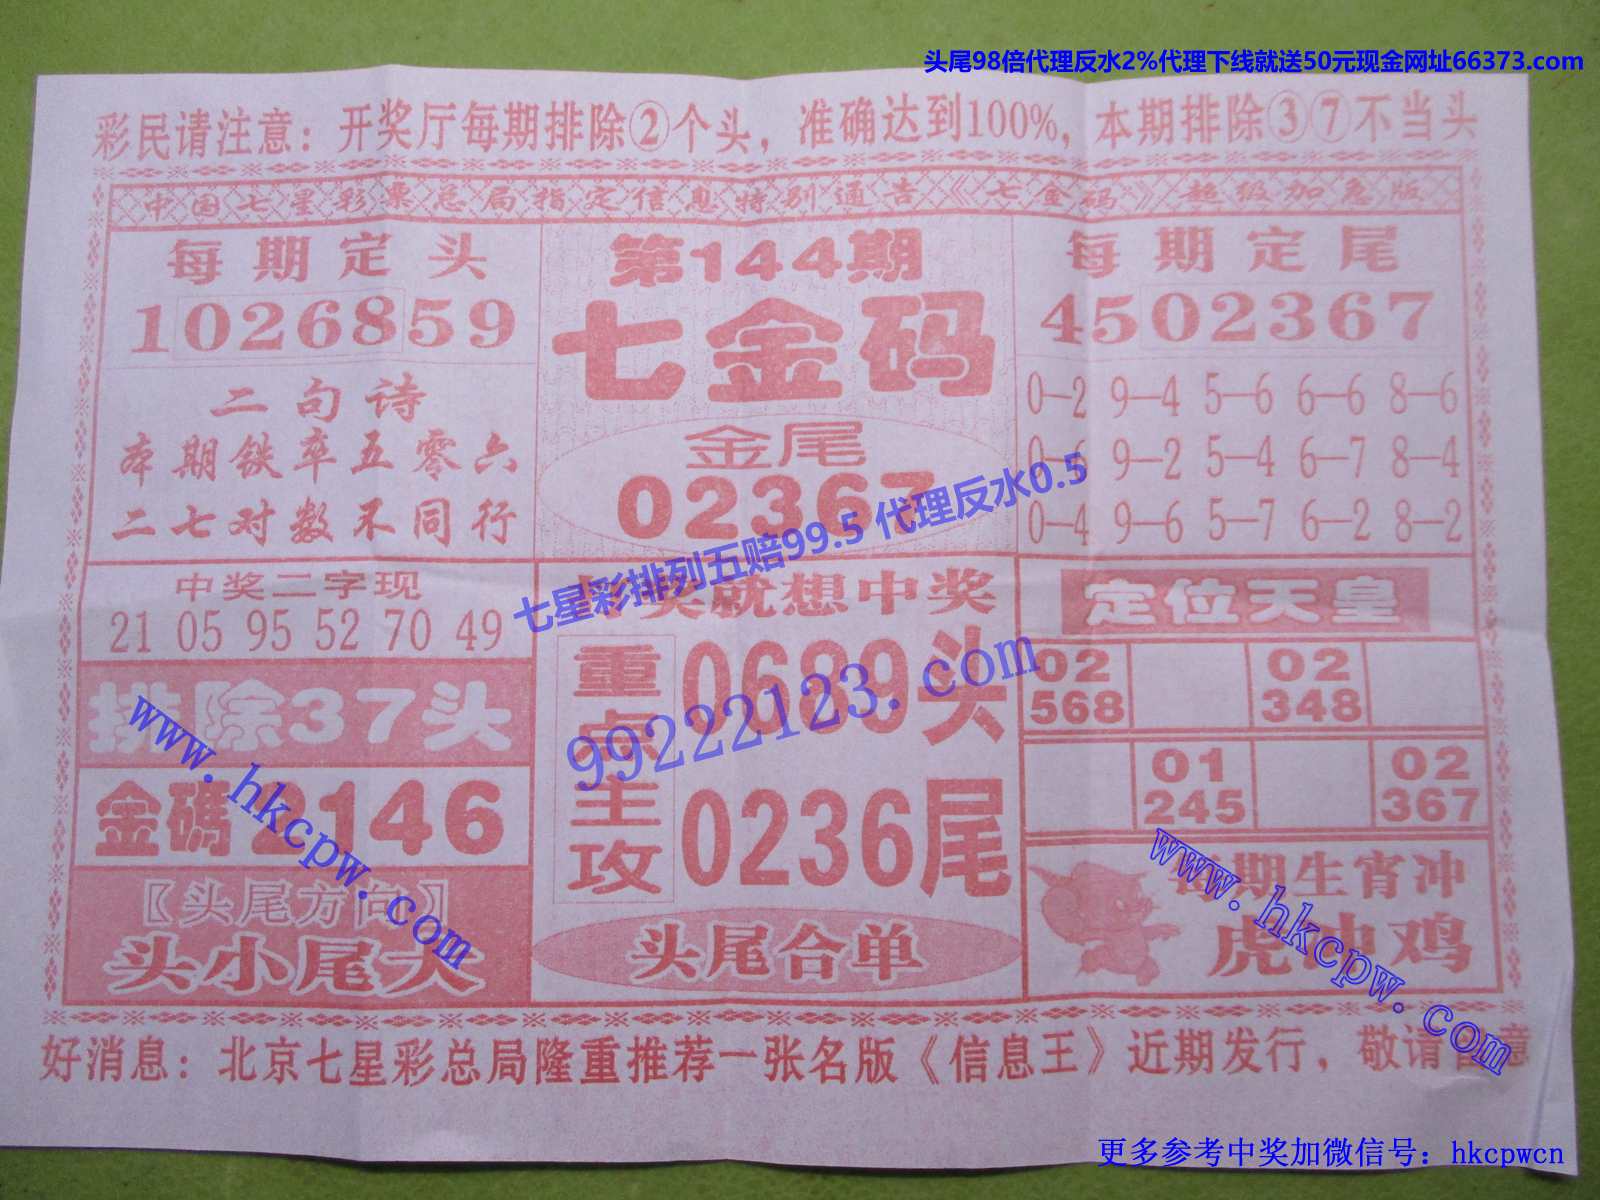 头尾98倍代理反水2%代理下线就送50元现金网址66373.com
彩民请注意：开奖厅每期排除②个头，准确达到100%，本期排除③⑦不当头
中国七星彩票总局指定信息特别通告《七金码》超级加急版
每期定头
1026859
二句诗
本期铁卒五零六
二七对数不同行
第144期
七金码
金尾
02367
每期定尾
4502367
0-2 9-4 5-6 6-6 8-6
0-6 9-2 5-4 6-7 8-4
0-4 9-6 5-7 6-2 8-2
七星彩排列五赔99.5 代理反水0.5
中奖二字现
21 05 95 52 70 49
排除37头
金碼2146
〖头尾方向〗
头小尾大
奖就想中奖
重点主攻
0689头
0236尾
头尾合单
99222123.com
定位天皇
02 02
568 348
01 02
245 367
每期生肖冲
虎冲鸡
www.hkcpw.com
www.hkcpw.com
好消息：北京七星彩总局隆重推荐一张名版《信息王》近期发行，敬请注意
更多参考中奖加微信号：hkcpwcn